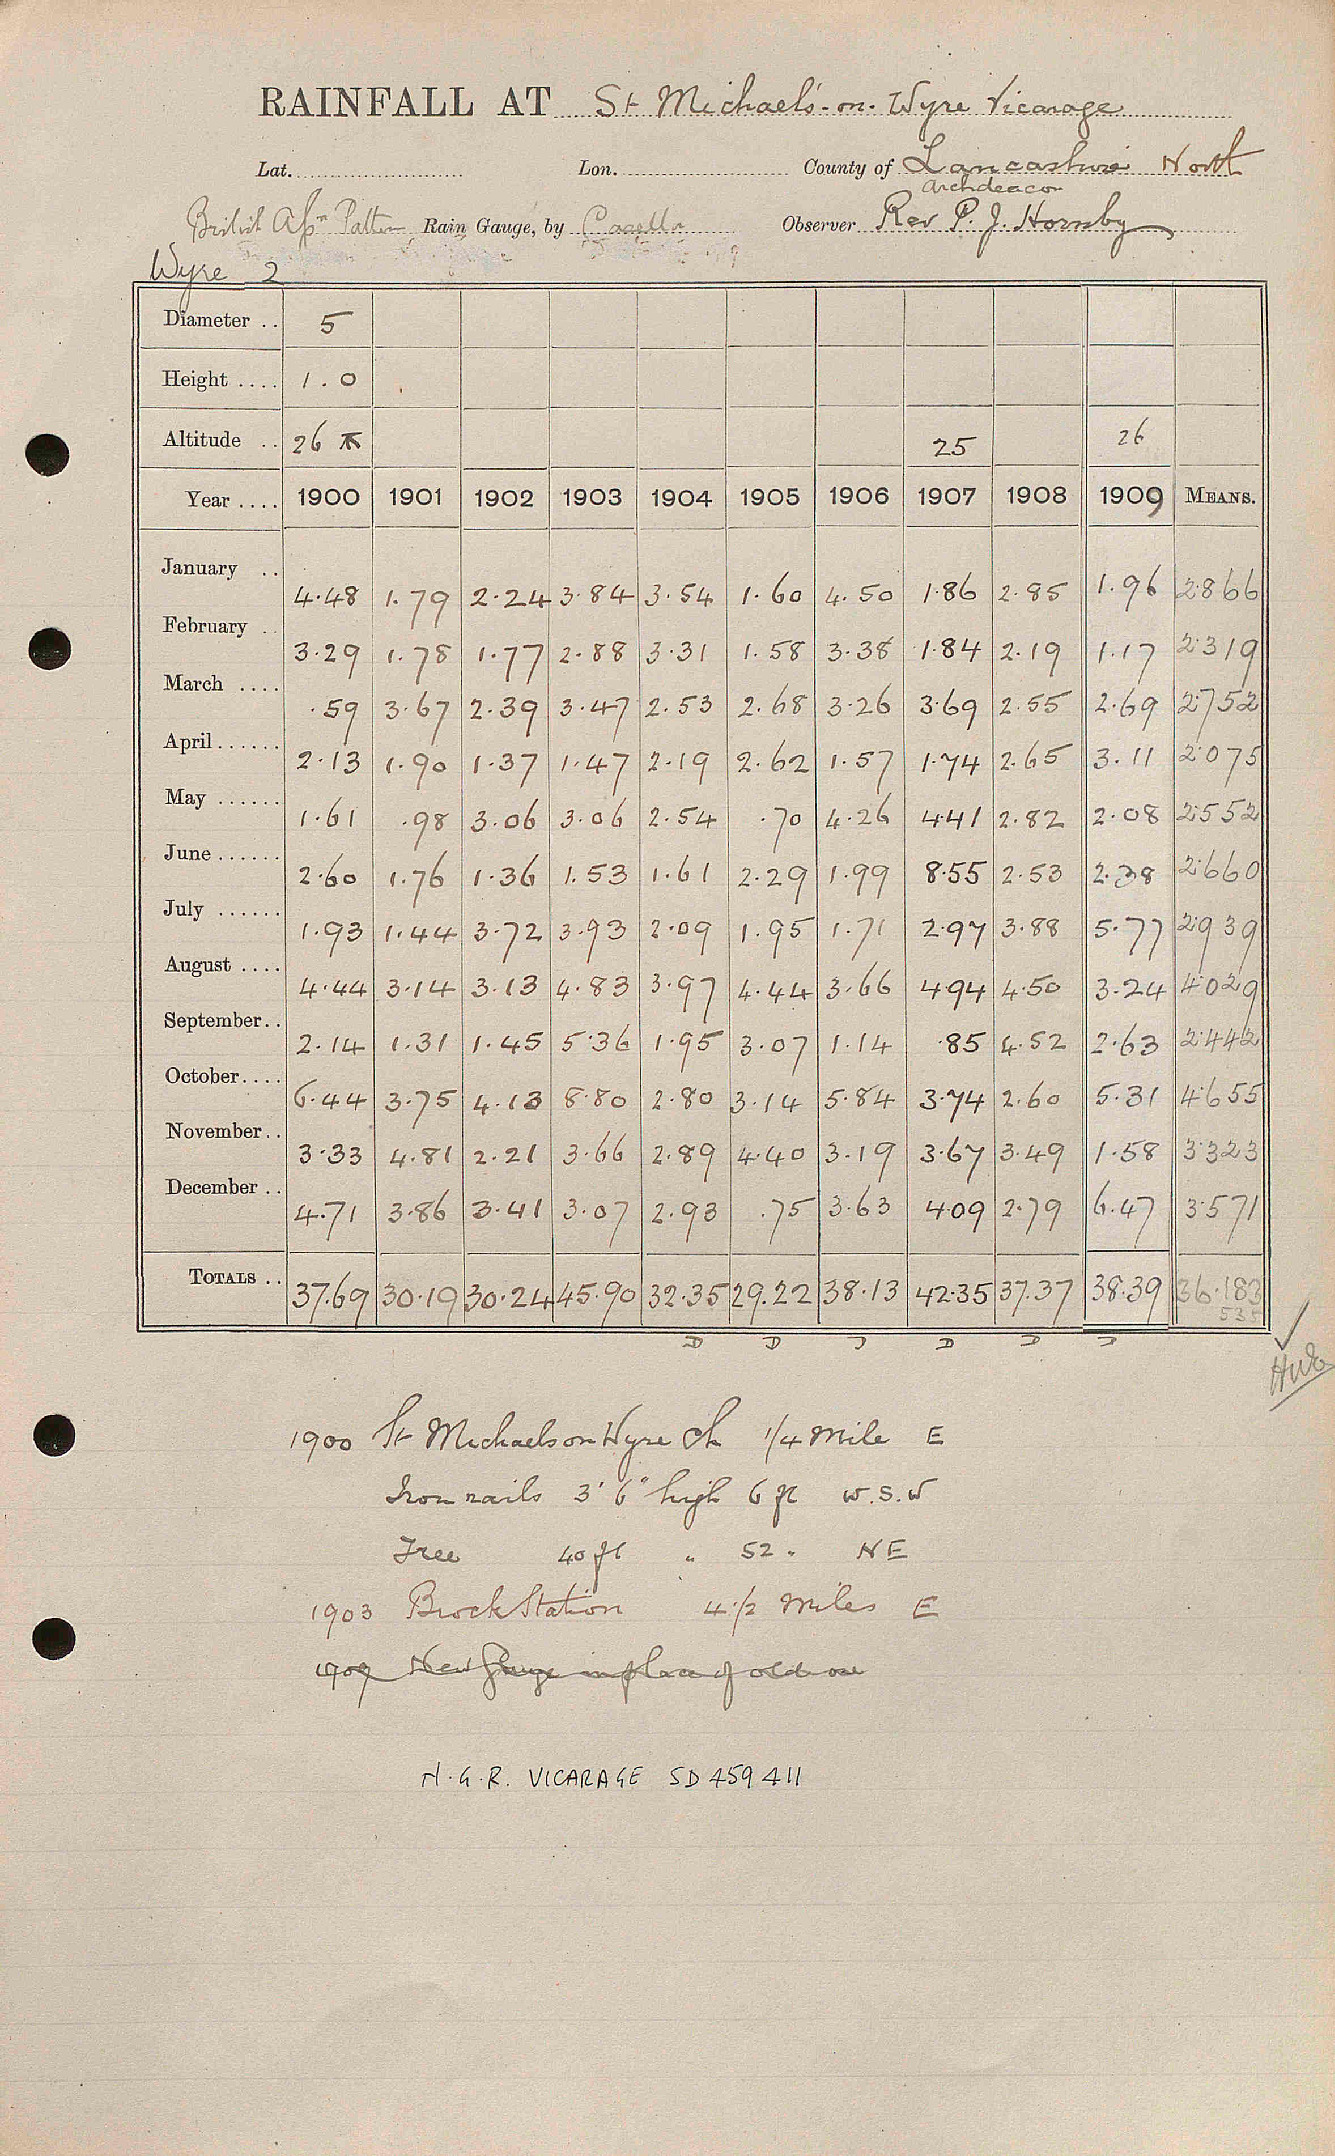 RAINFALL AT St Michael's-on-Wyre Vicarage
Lat. Lon. County of Lancashire North
Archdeacon
British Assn Pattern Rain Gauge, by Casella Observer Rev P. J. Hornby
Wyre 2
Diameter .. 5
Height .... 1.0
Altitude .. 26 25 26
Year .... 1900 1901 1902 1903 1904 1905 1906 1907 1908 1909 MEANS.
January .. 4.48 1.79 2.24 3.84 3.54 1.60 4.50 1.86 2.85 1.96 2.866
February .. 3.29 1.78 1.77 2.88 3.31 1.58 3.38 1.84 2.19 1.17 2.319
March .... .59 3.67 2.39 3.47 2.53 2.68 3.26 3.69 2.55 2.69 2.752
April...... 2.13 1.90 1.37 1.47 2.19 2.62 1.57 1.74 2.65 3.11 2.075
May ...... 1.61 .98 3.06 3.06 2.54 .70 4.26 4.41 2.82 2.08 2.552
June...... 2.60 1.76 1.36 1.53 1.61 2.29 1.99 8.55 2.53 2.38 2.660
July ...... 1.93 1.44 3.72 3.93 2.09 1.95 1.71 2.97 3.88 5.77 2.939
August .... 4.44 3.14 3.13 4.83 3.97 4.44 3.66 4.94 4.50 3.24 4.029
September.. 2.14 1.31 1.45 5.36 1.95 3.07 1.14 .85 4.52 2.63 2.442
October.... 6.44 3.75 4.13 8.80 2.80 3.14 5.84 3.74 2.60 5.31 4.655
November.. 3.33 4.81 2.21 3.66 2.89 4.40 3.19 3.67 3.49 1.58 3.323
December .. 4.71 3.86 3.41 3.07 2.93 .75 3.63 4.09 2.79 6.47 3.571
TOTALS .. 37.69 30.19 30.24 45.90 32.35 29.22 38.13 42.35 37.37 38.39 36.183
535
D D D D D D
1900 St Michaels on Wyre Ch 1/4 Mile E
Iron rails 3' 6" high 6 ft W.S.W
Tree 40 ft " 52 " NE
1903 Brock Station 4 1/2 Miles E
1907 New Gauge in place of old one
N.G.R. VICARAGE SD 459 411